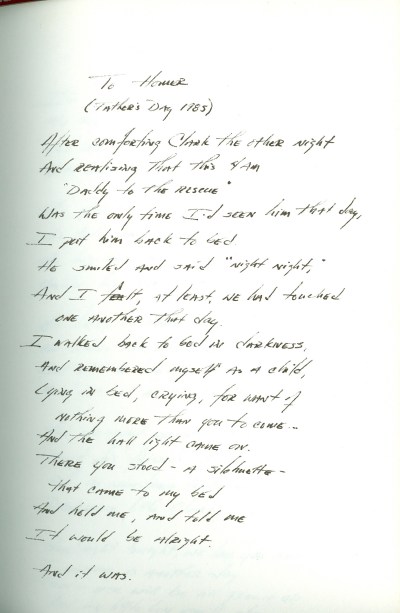 To Homer
(Father's Day 1985)
After comforting Clark the other night
And realizing that this 4 AM
"Daddy to the rescue"
Was the only time I'd seen him that day,
I put him back to bed
He smiled and said "night night,"
And I felt, at least, we had touched
one another that day.
I walked back to bed in darkness,
And remembered myself as a child,
Lying in bed, crying, for want of
nothing more than you to come...
And the hall light came on.
There you stood - a silohuette -
that came to my bed
And held me, and told me
It would be alright.
And it was.